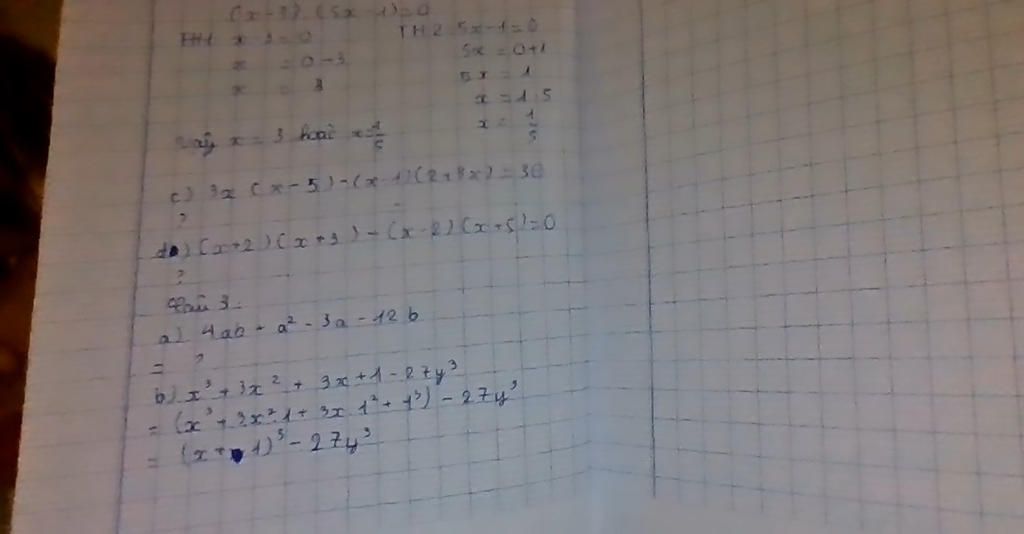 (x-3).(5x-1)=0
TH1 x-3=0 TH2 5x-1=0
x = 0+3 5x = 0+1
x = 3 5x = 1
x = 1:5
Vậy x = 3 hoặc x=1/5 x = 1/5
c) 3x (x-5)-(x-1)(2+3x)=30
?
d) (x+2)(x+3)-(x-2)(x+5)=0
?
Bài 3:
a) 4ab + a² - 3a - 12b
= ?
b) x³ + 3x² + 3x + 1 - 27y³
= (x³ + 3x².1 + 3x.1² + 1³) - 27y³
= (x + 1)³ - 27y³